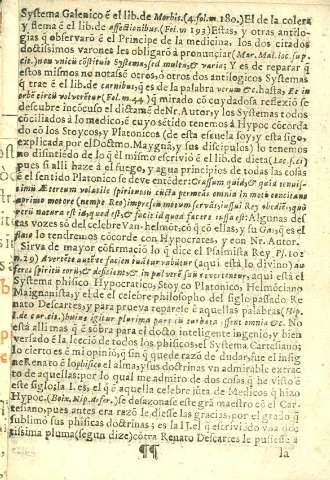 Systema Galenico è el lib. de Morbis. (4. fol. m. 280.) El de la colera
y flema è el lib. de affectionibus. (Fol. m 193) Estas, y otras antilo-
gias q̃ observarõ è el Principe de la medicina, los dos citados
doctissimos varones les obligarõ a pronunciar (Mar. Mat. loc. sup.
cit.) non vnicũ cõstituis Systema, sed multa, & varia; Y es de reparar q̃
estos mismos no notasẽ otros, ò otros dos antilogicos Systemas
q̃ trae è el lib. de carnibus, q̃ es de la palabra verum & c. hasta, Et in
orbe circũ volverẽtur (Fol. m. 44) q̃ mirado cõ cuydadosa reflexiò se
descubre incòculso el dictamẽ de Nr. Autor, y los Systemas todos
còciliados à lo medico, è cuyo sẽtido tenemos à Hypoc. còcorda
do cõ los Stoycos, y Platonicos (de esta escuela soy, y esta sigo,
explicada por el Doctmo. Maygnã, y sus discipulos) lo tenemos
no distinto de lo q̃ èl mismo escriviò è el lib. de dieta (Loc. s. ci)
pues si alli haze à el fuego, y agua principios de todas las cosas
è el sentido Platonico se debe entender: Crassum quid, & quid tenuis-
simũ Æthereum volatile spirituosũ cũcta permeãs omnia in motũ concitans
à primo motore (nempe Reo) impressum motum servãs, iussui Rey obediẽs, quò
verò natura est id, quod est, & facit id quod facere iussa est. Algunas des-
tas vozes sõ del celebre Van-helmõt, cõ q̃ cõ ellas, y su Gas, q̃ es el
mismo lo tendremos còcorde con Hypocrates, y con Nr. Autor.
Sirva de mayor còfirmaciò lo q̃ dice el Psalmista Rey Pf. 102
m. 29) Avertẽte autẽ te faciẽ turbãtur (aqui està lo divino) au-
feres spiritũ eorũ, & deficient, & in pulverẽ suũ revertentur, aqui està el
Systema phisico Hypocratico, Stoyco Platonico, Helmòciano
Maignanista, y el de el celebre philosopho del siglo passado Re
nato Descartes, y para prueva reparese è aquellas palabras (Hip.
l. de car. cit.) huius igitur plurima pars in turbata essent omnia &c. No
està alli mas q̃ è sòbra para el docto inteligente ingenio, y bien
versado è la lecciò de todos los phisicos, el Systema Cartesiano;
lo cierto es è mi opiniò, y sin q̃ quede razò de dudar, fue el insig
ne Renato è lo phisico el alma; y sus doctrinas vn admirable extrac
to de aquellas; por lo qual me admiro de dos cosas q̃ he visto è
este siglo; la I. es, el q̃ à aquella celebre jũta de Medicos q̃ hizo
Hypoc. (Boix. Hip. defer.) se dasazonase este grã maestro cõ el Car-
tesiano, pues antes era razò le diesse las gracias, por el grado q̃
sublimò sus phisicas doctrinas; es la II. el q̃ escrivièdo vna doc-
tissima pluma (segun dize) còtra Renato Descartes le pusiesse à
¶¶ la